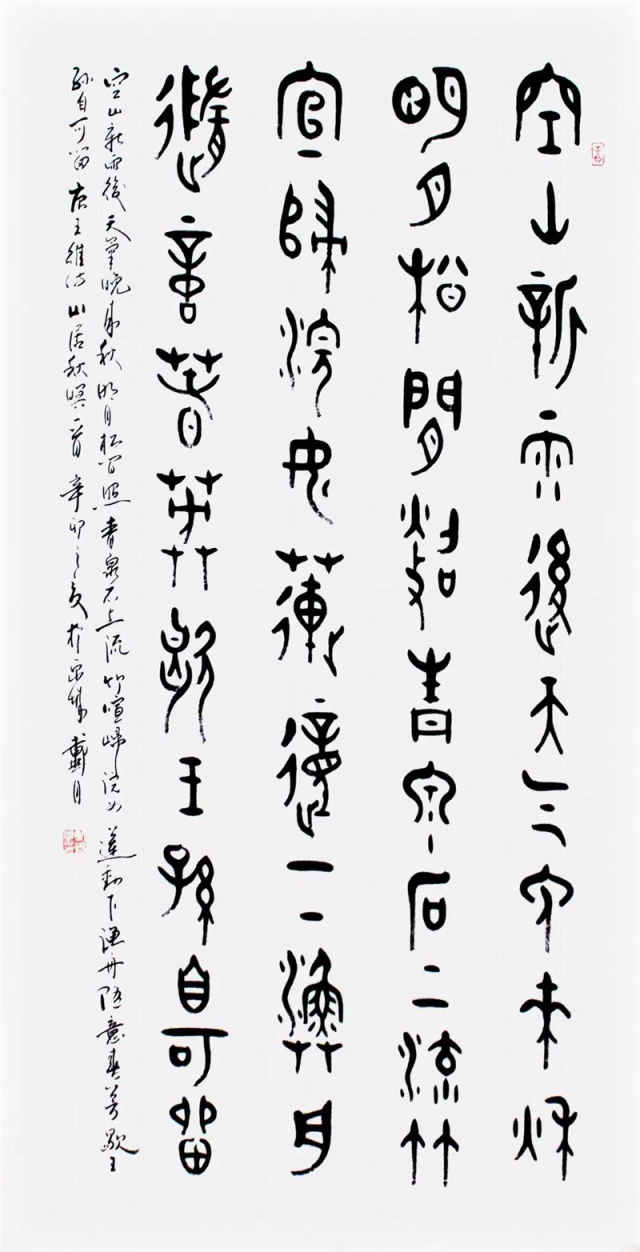 空山新雨後天气晚来秋
明月松間照青泉石上流竹
宣歸浣女蓮動下漁舟
隨意春芳歇王孫自可留
空山新雨後天气晚来秋明月松间照青泉石上流竹喧歸浣女蓮動下漁舟隨意春芳歇王
孫自可留 唐王維诗山居秋暝一首 辛卯之夏於京 戴月